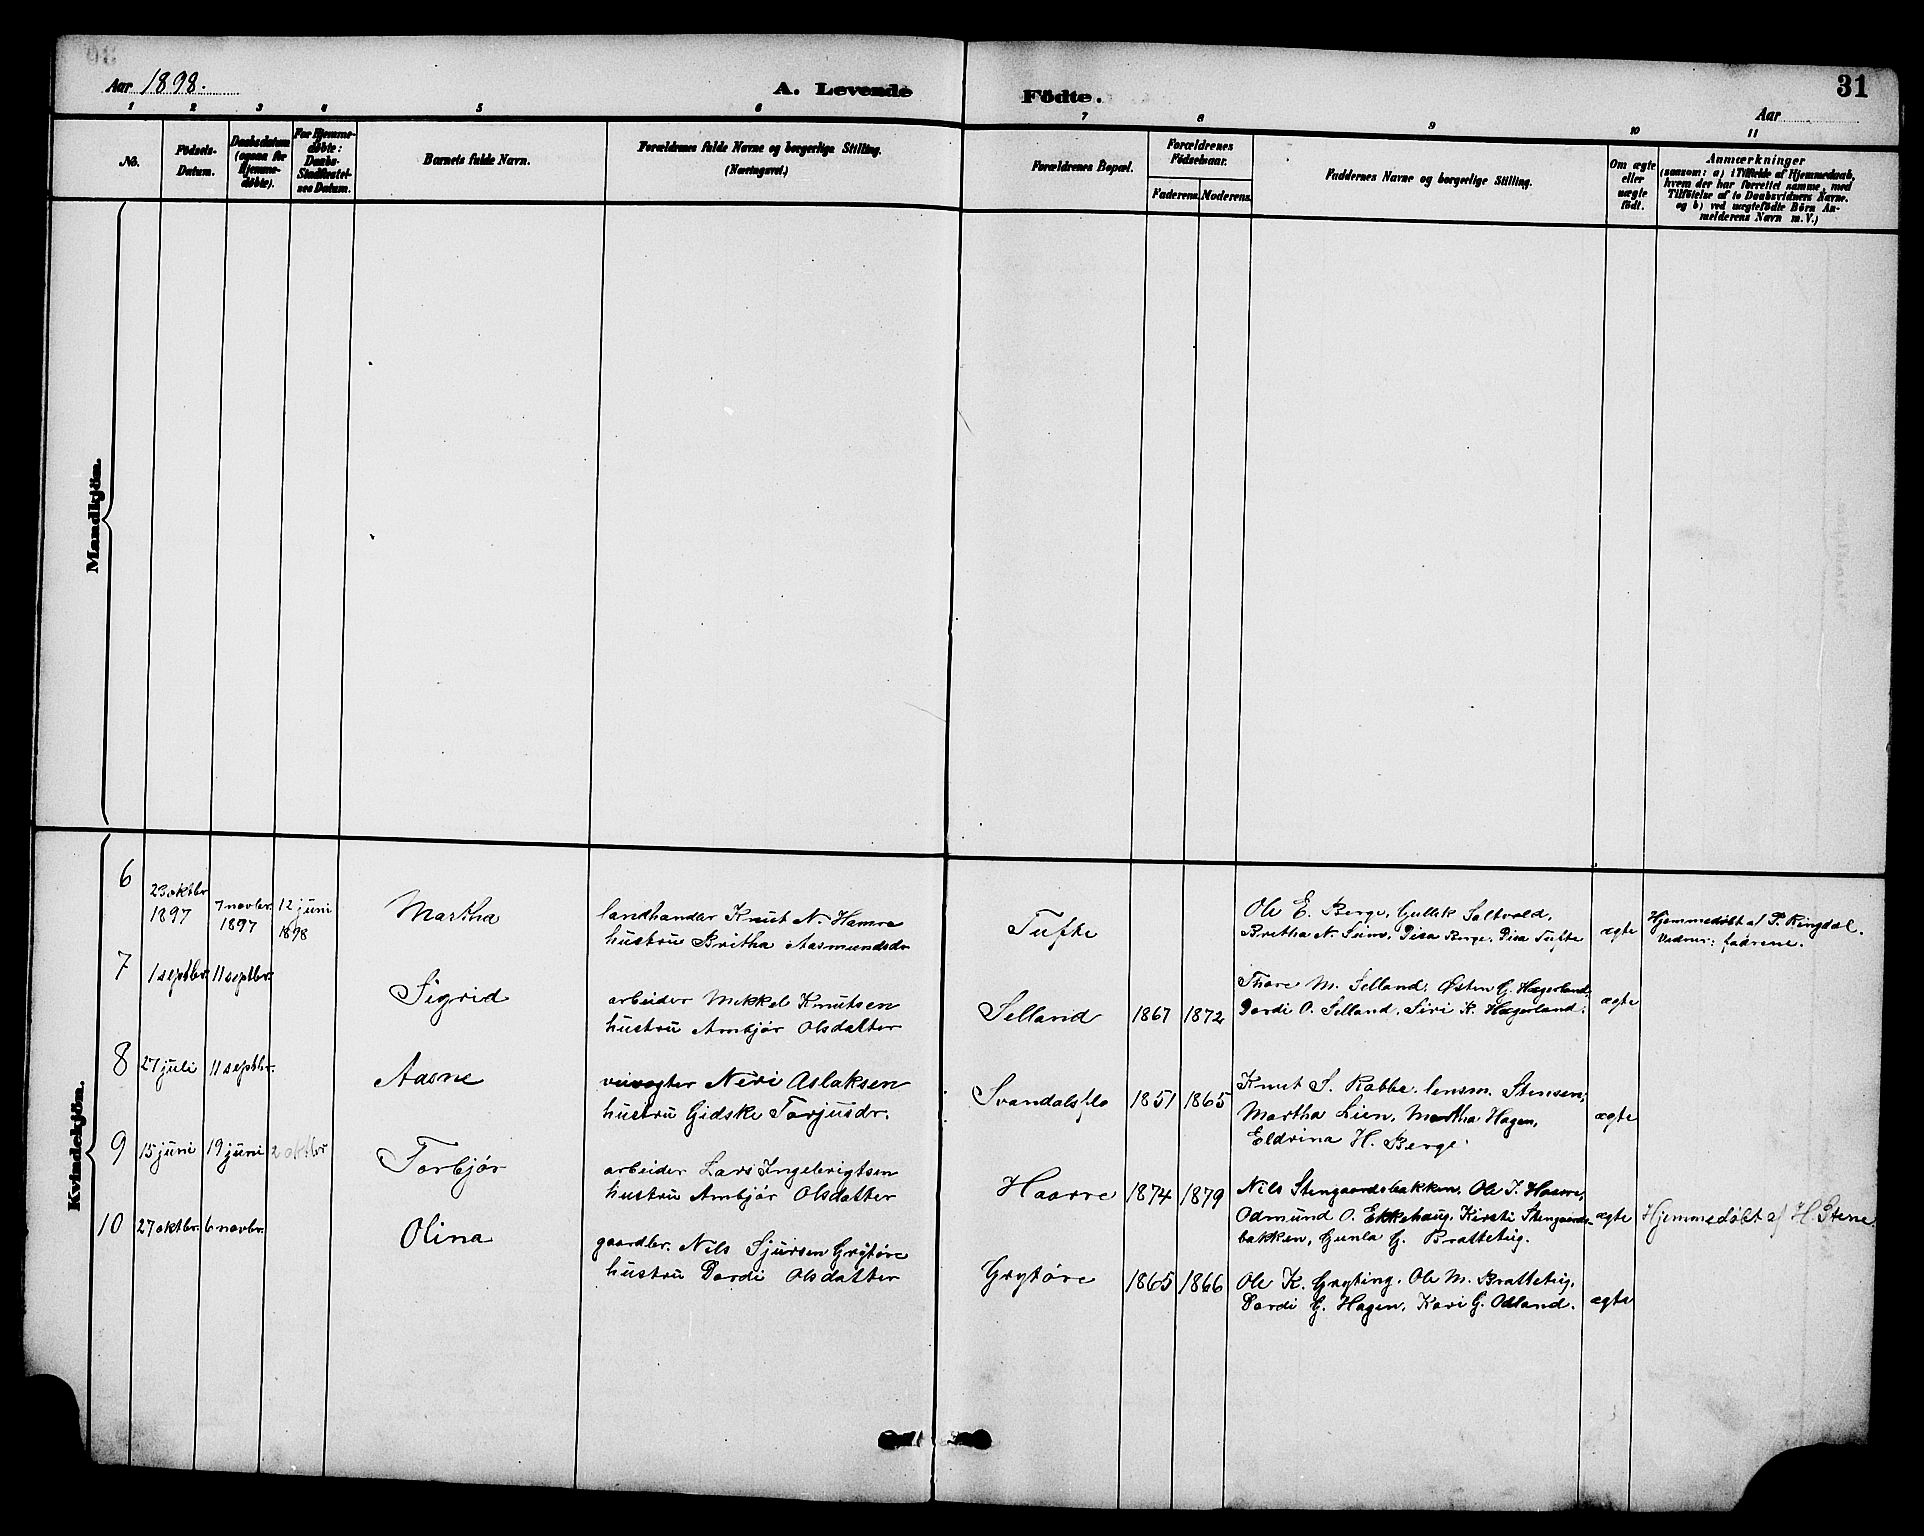 Aar 1898.
A. Levende Födte.
31
Aar
1 2 3 4 5 6 7 8 9 10 11
No.
Födsels-
Datum.
Daabsdatum
(ogsaa for
Hjemme-
døbte).
For Hjemme-
døbte:
Daabs-
Stadfæstel-
ses Datum.
Barnets fulde Navn.
Forældrenes fulde Navne og borgerlige Stilling.
(Næringsvei.)
Forældrenes Bopæl.
Forældrenes
Födselsaar.
Faderens. Moderens.
Faddernes Navne og borgerlige Stilling.
Om ægte
eller
uægte
födt.
Anmærkninger
(saasom: a) i Tilfælde af Hjemmedaab,
hvem der har forrettet samme, med
Tilföielse af to Daabsvidners Navne.
og b) ved uægtefödte Börn An-
melderens Navn m.V.)
Mandkjön.
Kvindekjön.
6
23 oktbr
1897
7 novbr.
1897
12 juni
1898
Martha
landhandler Knut N. Hamre
hustru Britha Aasmundsdr
Tufte
Ole E. Berge, Gullik Saltvold,
Britha N. Seim, Gisa Berge, Gisa Tufte
ægte
Hjemmedøbt af P. Ringdal.
fadrene.
7
1 septbr. 11 septbr.
Sigrid
arbeider Mikkel Knutsen
hustru Ambjør Olsdatter
Selland 1867 1872
Thore M. Selland, Østen G. Hægerland,
Dordi O. Selland, Siri K. Hægerland.
ægte
8
27 juli 11 septbr.
Aasne
veivogter Neri Aslaksen
hustru Gidske Torjusdr.
Svandalsflo 1851 1865
Knut S. Rabbe, lensm. Stensen,
Martha Lien, Martha Hagen,
Eldrina H. Berge.
ægte
9
15 juni 19 juni 2 oktbr
Torbjør
arbeider Lars Ingebrigtsen
hustru Ambjør Olsdatter
Haarre 1874 1879
Nils Stengaardsbakken, Ole T. Haarre,
Odmund O. Ekkehaug, Kirsti Stengaards-
bakken, Gunla G. Bratteteig.
ægte
Hjemmedøbt af H. Stene.
10
27 oktbr. 6 novbr.
Olina
gaardbr. Nils Sjursen Grytøre
hustru Dordi Olsdatter
Grytøre 1865 1866
Ole K. Gryting, Ole M. Bratteteig,
Dordi G. Hagen, Kari G. Odland.
ægte